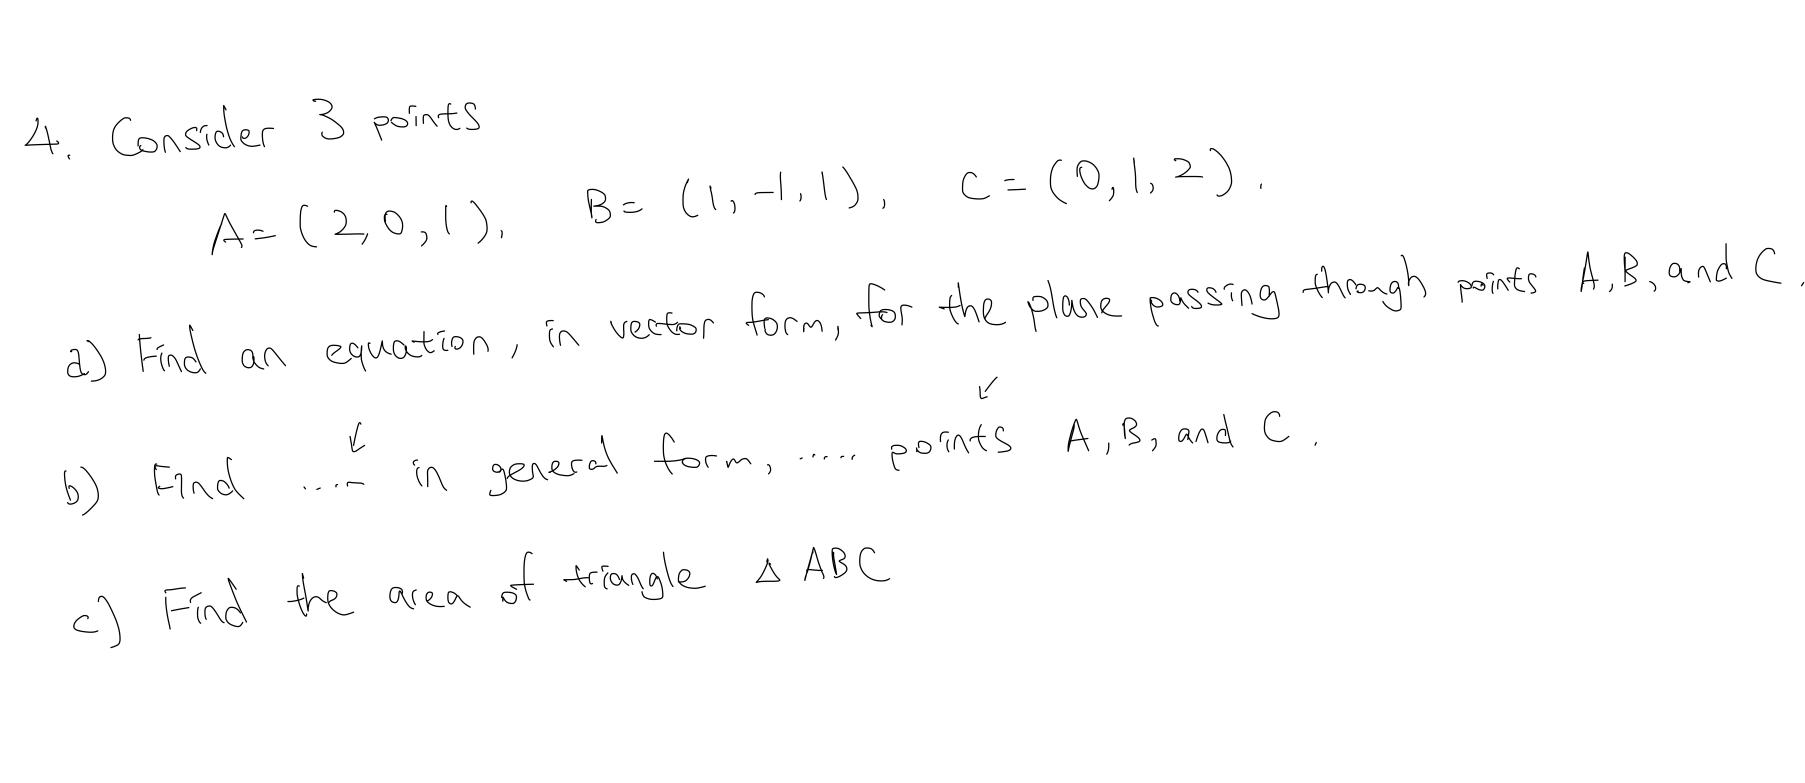 4. Consider 3 points
A = (2,0,1), B = (1,-1,1), C = (0,1,2).
a) Find an equation, in vector form, for the plane passing through points A,B, and C.
b) Find ..... in general form, ..... points A,B, and C.
c) Find the area of triangle △ ABC